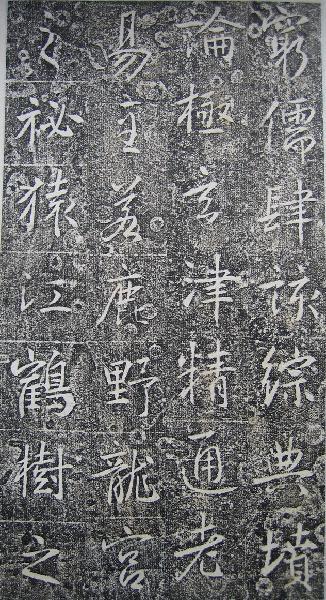 窮儒肆該綜典墳
論極玄津精通老
易至若鹿野龍宮
之祕猿江鶴樹之